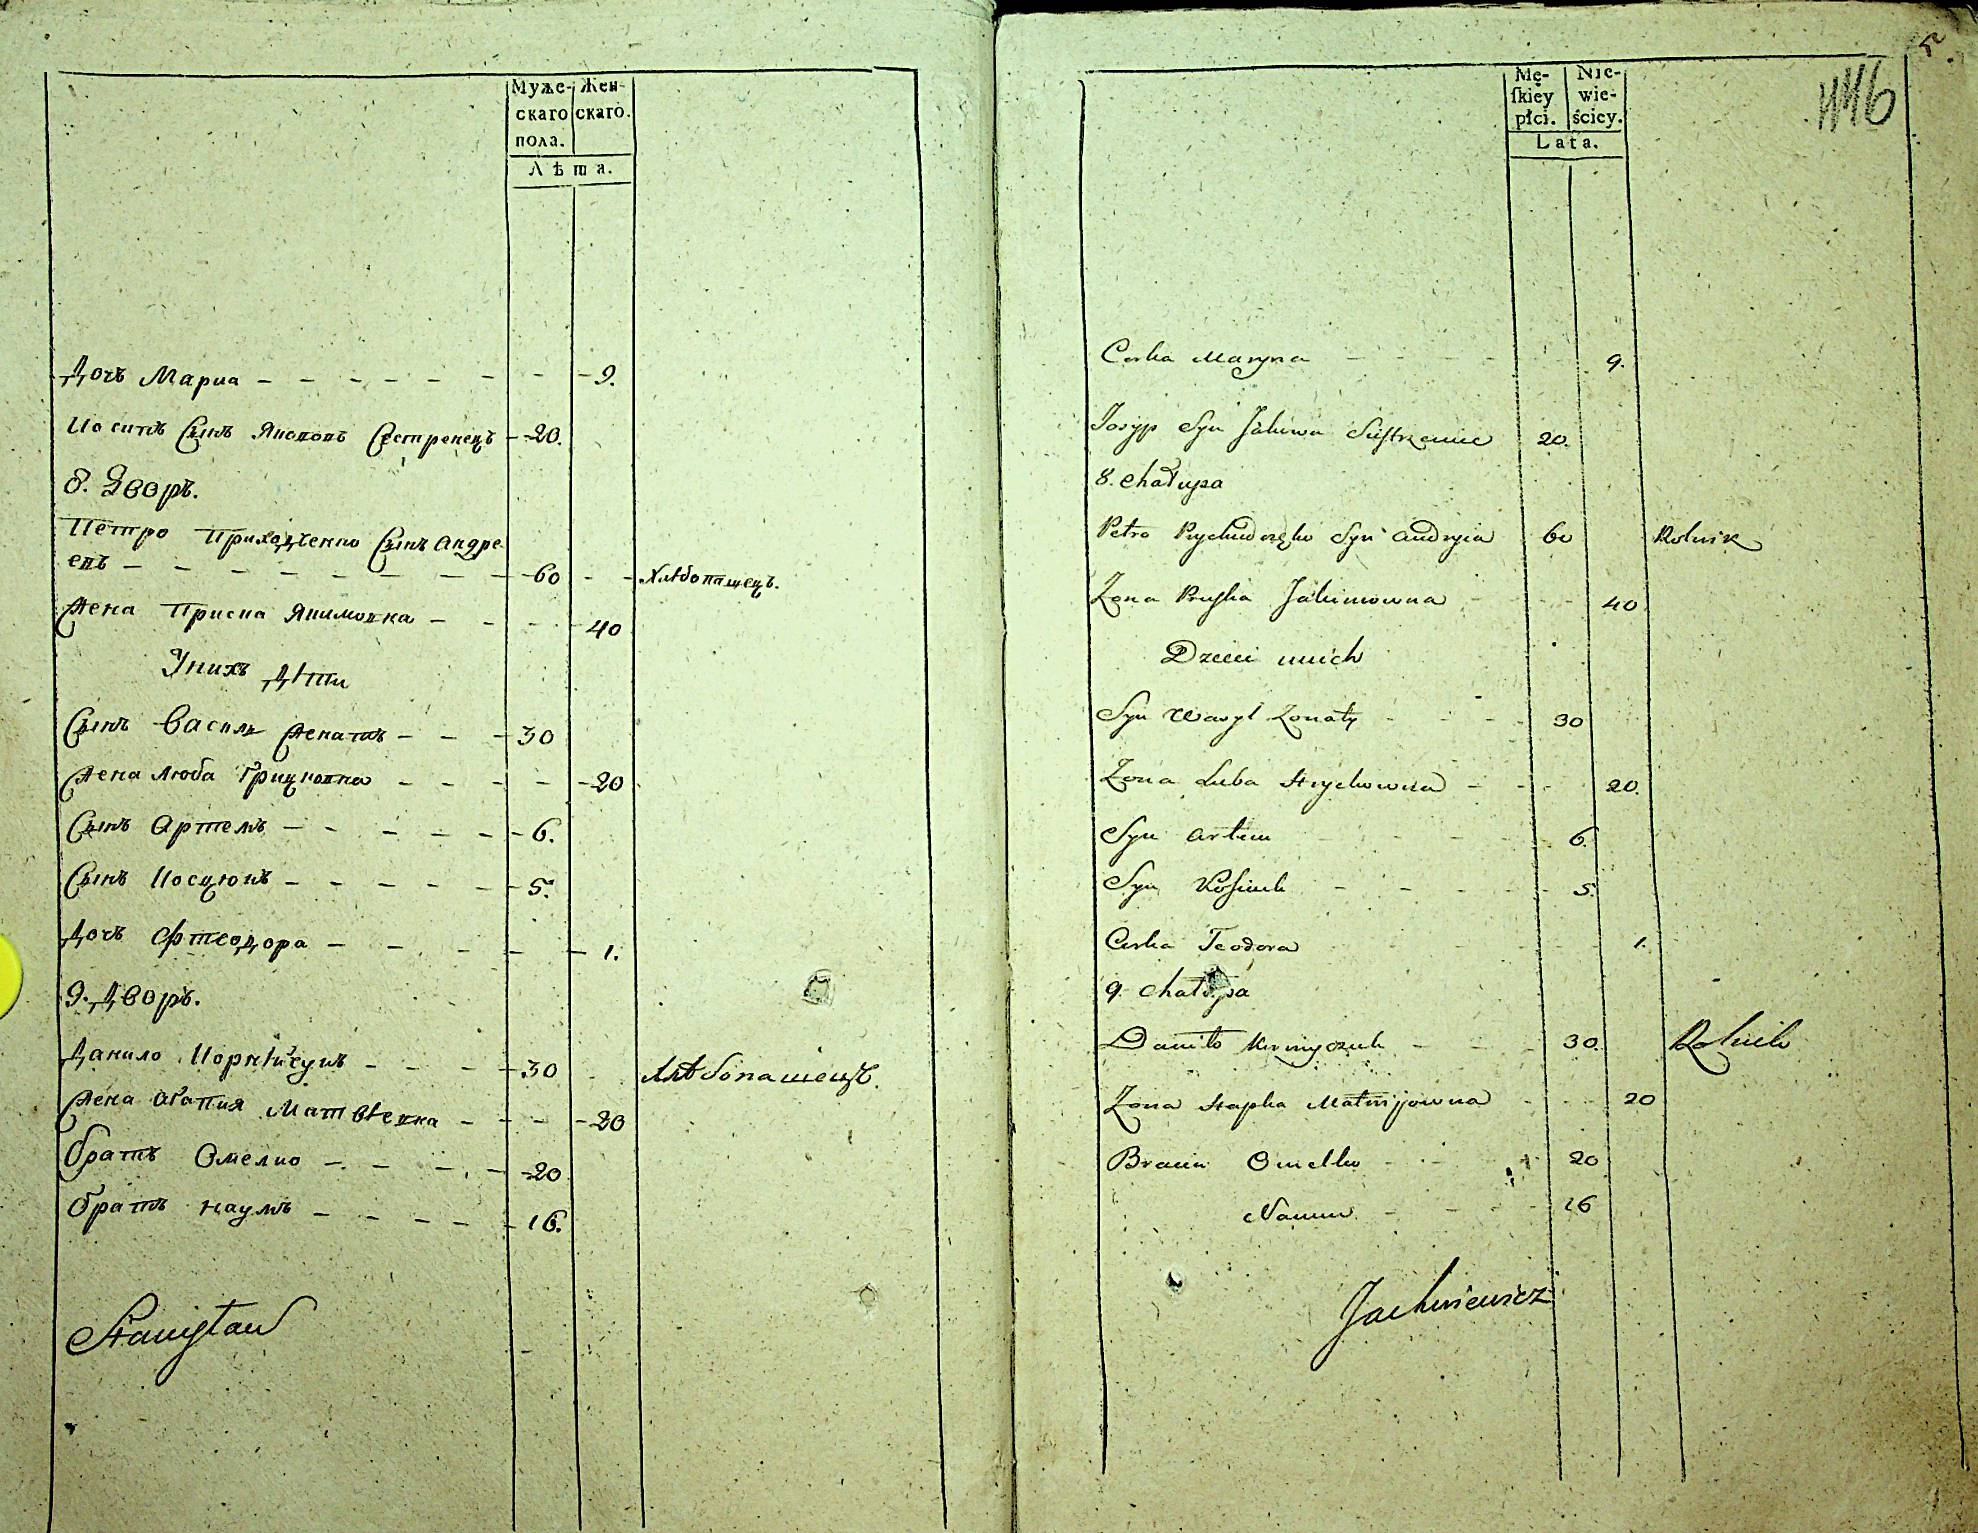 Муже- Жен-
скаго скаго.
пола.
Лѣта.
Дочъ Мариа - - - - - - - 9.
Иосипъ Сынъ Якововъ Сестренецъ - 20.
8. Дворъ.
Петро Приходченко Сынъ Андре
евъ - - - - - - - 60 - - Хлѣбопашецъ.
Жена Приска Якимовна - - - - 40
Унихъ Дѣти
Сынъ Василь Женатъ - - - 30
Жена Люба Грицковна - - - - 20
Сынъ Артемъ - - - - - 6.
Сынъ Косцюкъ - - - - - 5.
Дочъ Фтеодора - - - - - 1.
9. Дворъ.
Данило Корнѣйчукъ - - - 30 Хлѣбопашецъ.
Жена Агапия Матвѣевна - - - 20
братъ Омелко - - - - 20
братъ Наумъ - - - - 16.
Stanisław
5
446
Mę- Nie-
ſkiey wie-
płci. ściey.
Lata.
Corka Maryna - - - - 9.
Josyp Syn Jakuwa Siestrzeniec 20.
8. chałupa
Petro Prychodczęko Syn Andryia 60 Rolnik
Zona Pryska Jakimowna - - - 40
Dzieci unich
Syn Wasyl Zonaty - - - - 30
Zona Luba Hryckowna - - - 20.
Syn Artem - - - 6.
Syn Kosiuk - - - - 5.
Corka Teodora - - - 1.
9. chałupa
Daniło Kornyczuk - - - 30. Rolnik
Zona Hapka Matwijowna - - - 20
Bracia Omelko - - - 20
Naum - - - - 16
Jachniewicz